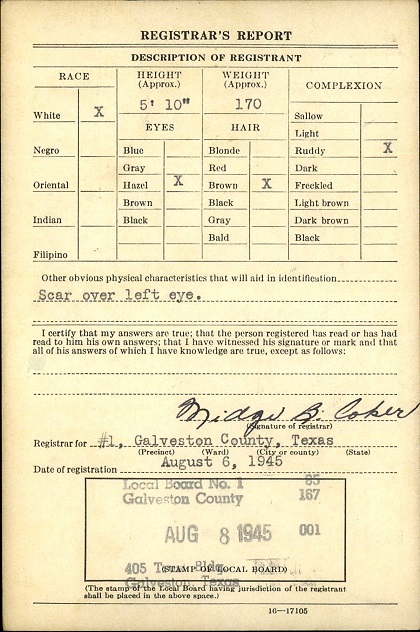 REGISTRAR'S REPORT
DESCRIPTION OF REGISTRANT
RACE
HEIGHT (Approx.)
WEIGHT (Approx.)
COMPLEXION
White X
5' 10"
170
Sallow
Light
EYES
HAIR
Negro
Blue
Blonde
Ruddy X
Gray
Red
Dark
Oriental
Hazel X
Brown X
Freckled
Brown
Black
Light brown
Indian
Black
Gray
Dark brown
Bald
Black
Filipino
Other obvious physical characteristics that will aid in identification
Scar over left eye.
I certify that my answers are true; that the person registered has read or has had
read to him his own answers; that I have witnessed his signature or mark and that
all of his answers of which I have knowledge are true, except as follows:
Midge B. Coker
(Signature of registrar)
Registrar for #1, Galveston County, Texas
(Precinct) (Ward) (City or county) (State)
Date of registration August 6, 1945
Local Board No. 1 85
Galveston County 167
AUG 8 1945 001
405 Bldg.
(STAMP OF LOCAL BOARD)
Galveston, Texas
(The stamp of the Local Board having jurisdiction of the registrant
shall be placed in the above space.)
16—17105